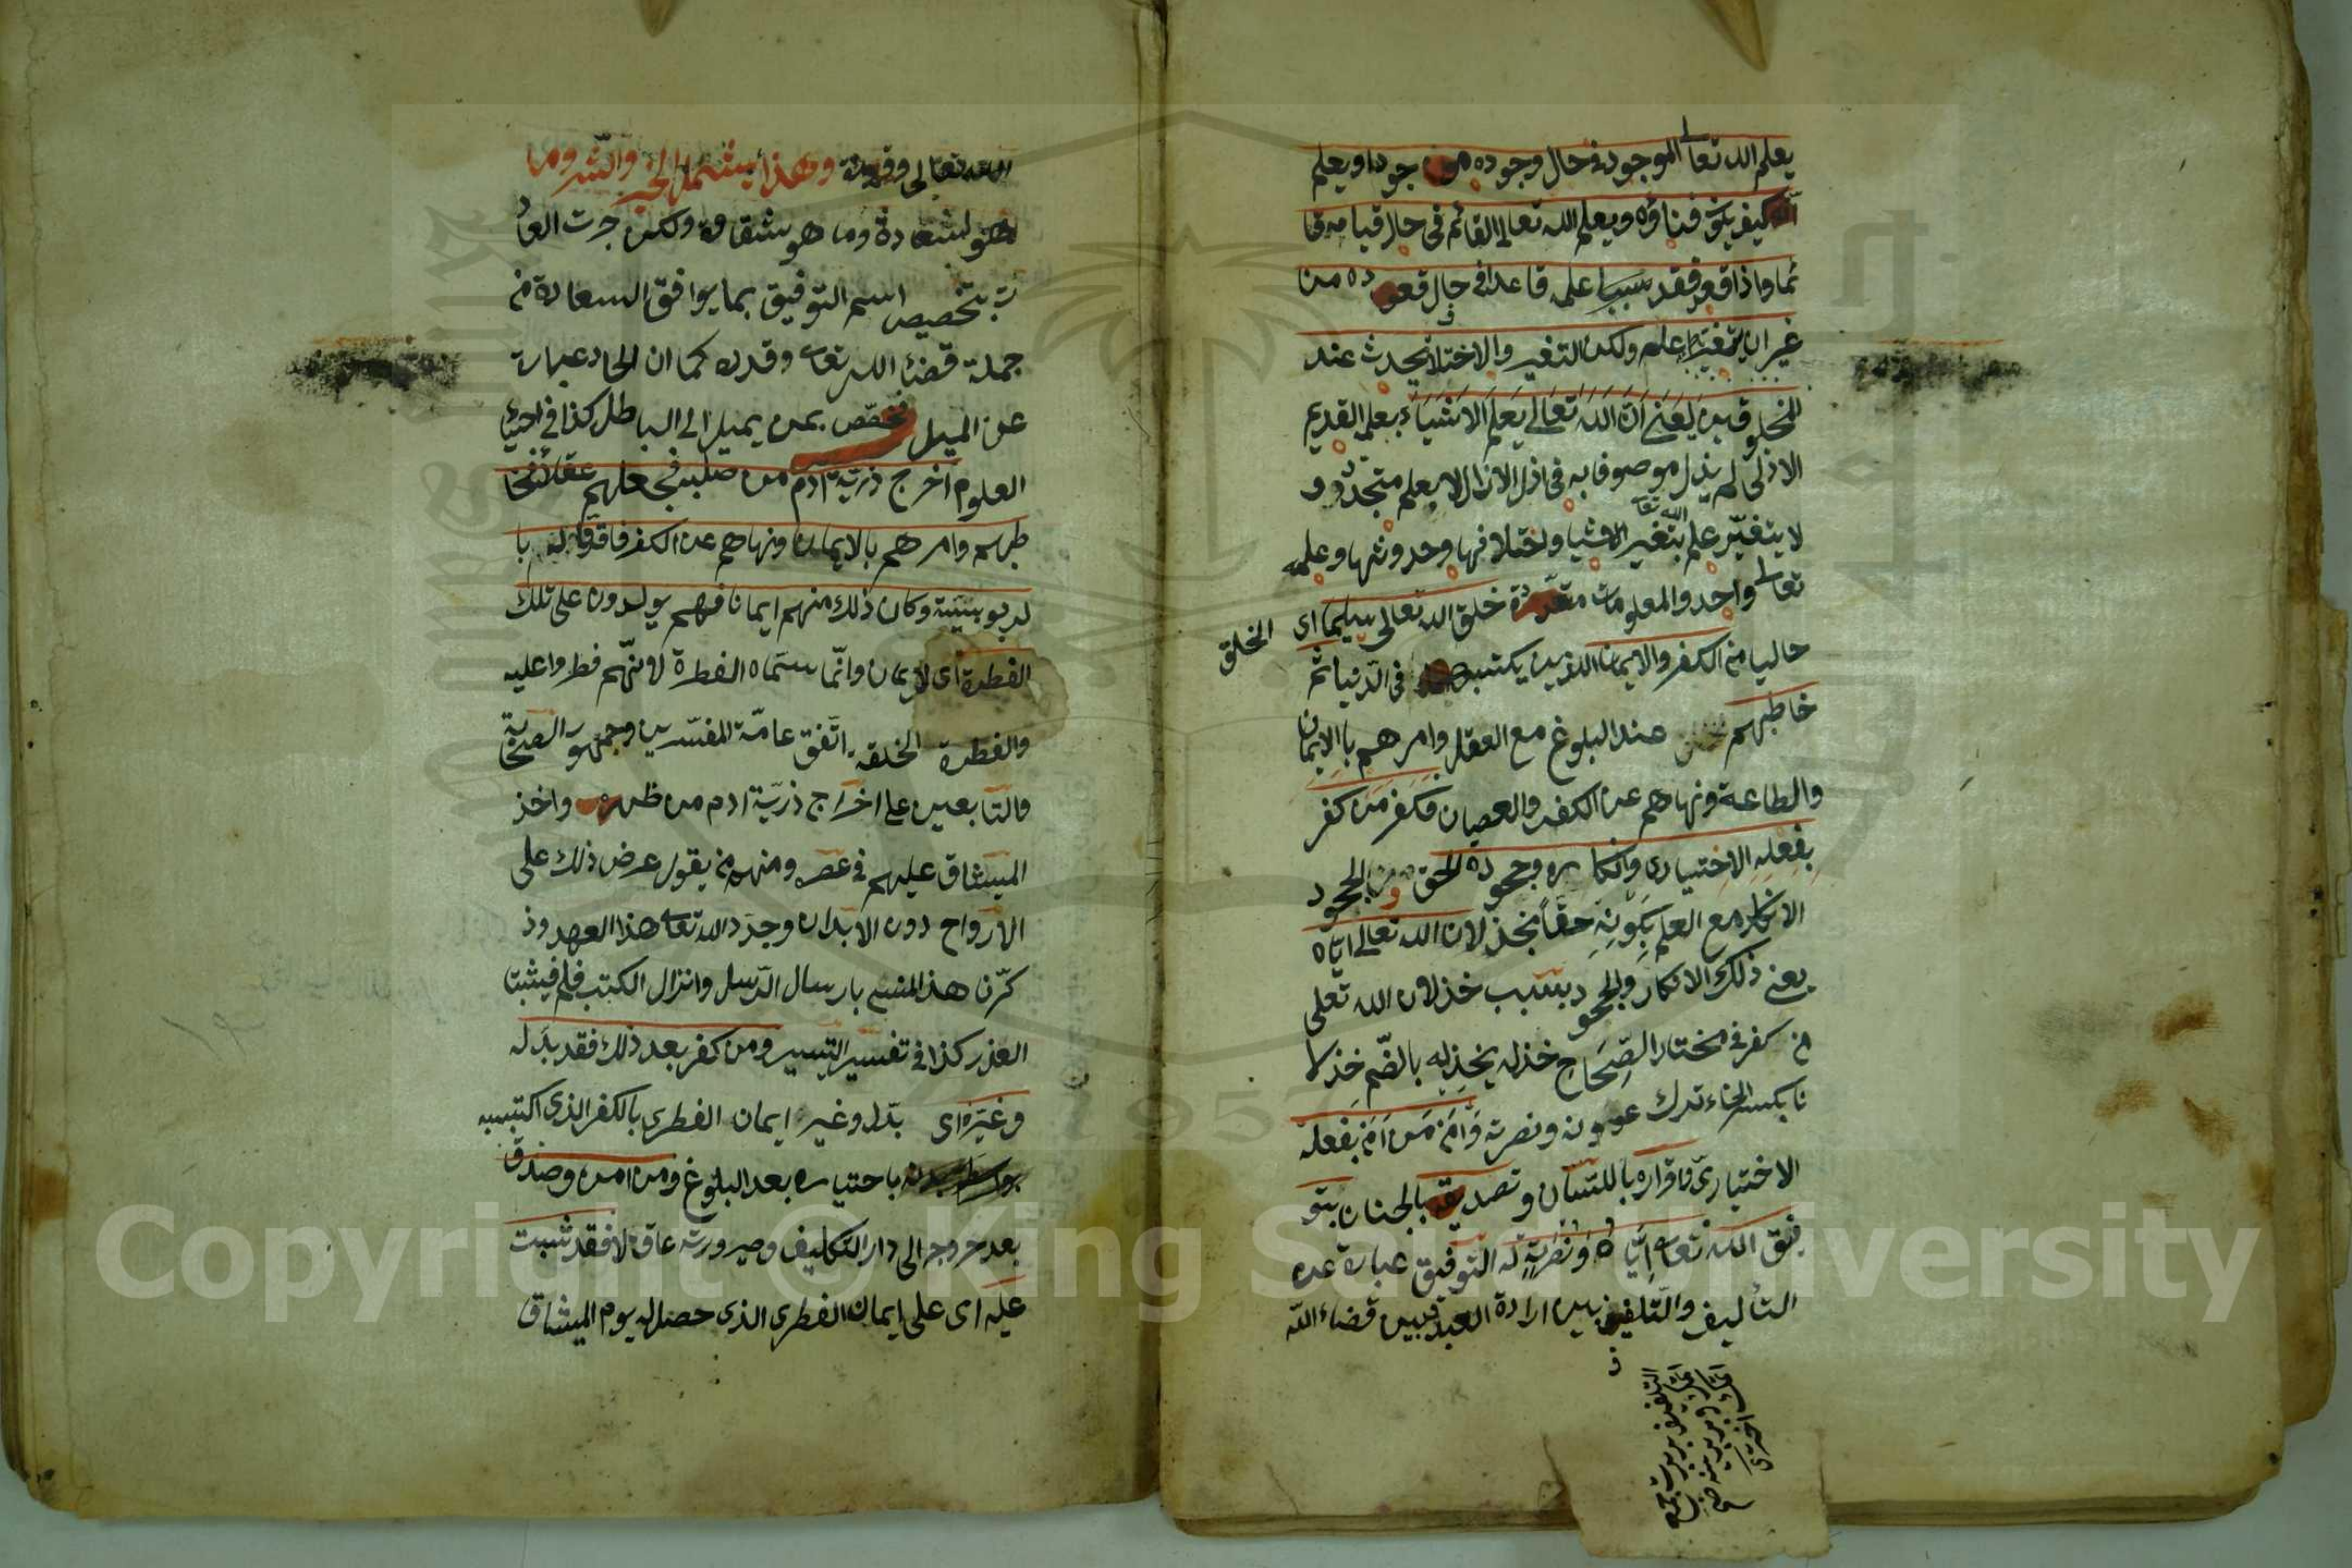 يعلم الله تعالى الموجود في حال وجوده موجودا ويعلم
انه كيف يكون فناؤه ويعلم الله تعالى القائم في حال قيامه قا
ئما واذا قعد فقد علمه قاعدا في حال قعوده من
غير ان يتغير علمه ولكن التغير والاختلاف يحدث عند
المخلوقين يعني ان الله تعالى يعلم الاشياء بعلمه القديم
الازلي لم يزل موصوفا به في ازل الازال لا بعلم متجدد و
لا يتغير علم الله تعا بتغير الاشيا واختلافها وحدوثها وعلمه
تعالى واحد والمعلومات متعددة خلق الله تعالى سليما اى الخلق
خاليا من الكفر والايمان الذين يكتسبهما في الدنيا ثم
خاطبهم عند البلوغ مع العقل وامرهم باالايمان
والطاعة ونهاهم عن الكفر والعصيان فكفر من كفر
بفعله الاختيارى وانكاره وجحوده للحق و الجحود
الانكار مع العلم بكونه حقا بخذلان الله تعالى اياه
يعني ذلك الانكار والجحود بسبب خذلان الله تعلى
من كفر في مختار الصحاح خذله يخذله بالضم خذلا
نا بكسر الخاء ترك عونه ونصرته وآمن من آمن بفعله
الاختيارى واقراره باللسان وتصديقه بالجنان بتو
فيق الله تعالى اياه ونصرته له التوفيق عبارة عن
التأليف والتلفيق بين ارادة العبد وبين قضاء الله
الله تعالى وقدرة وهذا يشمل الخير والشر وما
هو لسعادة وما هو شقاوة ولكن جرت العا
دت بتخصيص اسم التوفيق بما يوافق السعادة من
جملة قضاء الله تعالى وقدره كما ان الحاد عبارة
عن الميل تخصص بمن يميل الى الباطل كذا في احياء
العلوم اخرج ذرية آدم من صلبه فجعلهم عقلاء فخا
طبهم وامرهم بالايمان ونهاهم عن الكفر فاقروا له با
لربوبية وكان ذلك منهم ايمانا فهم يولدون على تلك
الفطرة اى الايمان وانما سماه الفطرة لانهم فطروا عليه
والفطرة الخلقة اتفق عامة المفسرين وجمهور الصحابة
والتابعين على اخراج ذرية ادم من ظهره واخذ
الميثاق عليهم في عصره ومنهم من يقول عرض ذلك على
الارواح دون الابدان وجدد الله تعالى هذا العهد وذ
كرنا هذا المنسى بارسال الرسل وانزال الكتب فلم يثبتا
العذر كذا في تفسير التيسير ومن كفر بعد ذلك فقد بدل
وغير اى بدل وغير ايمان الفطرى بالكفر الذى اكتسبه
باختياره بعد البلوغ ومن امن وصدق
بعد خروجه الى دار التكليف وصيرورته عاقلا فقد ثبت
عليه اى على ايمان الفطرى الذى حصل له يوم الميثاق
Copyright © King Saud University